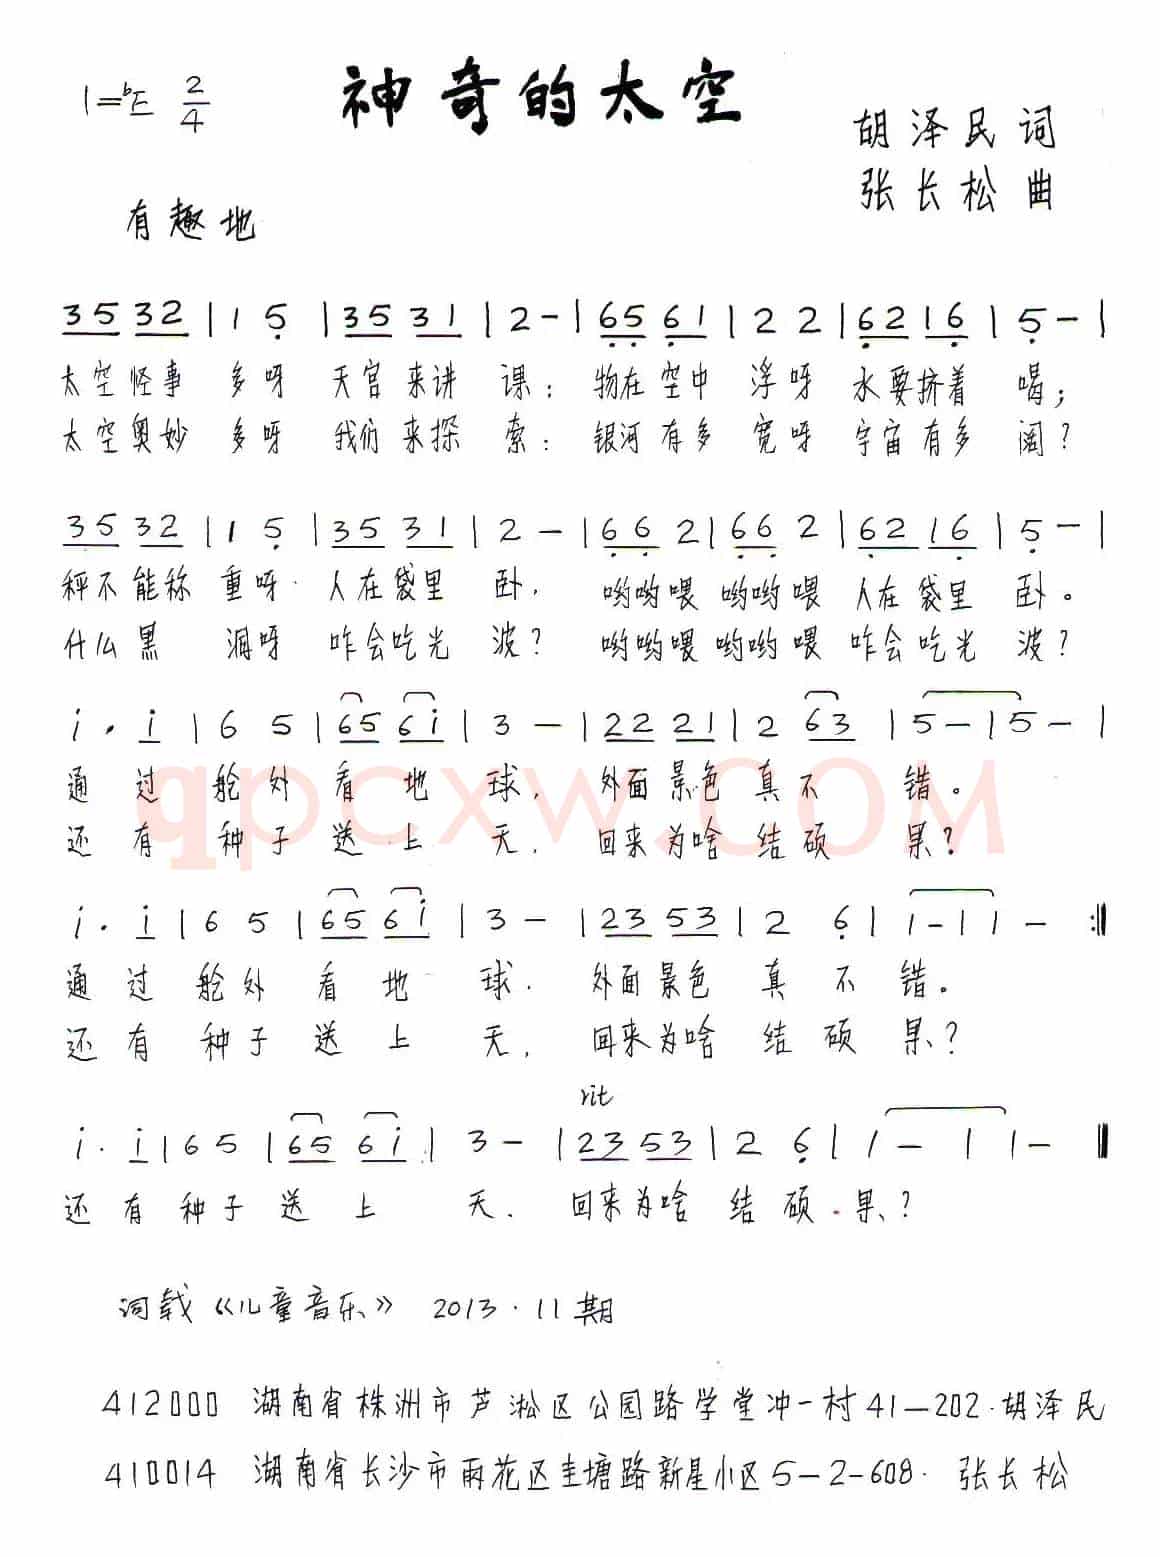 神奇的太空
1=♭E 2/4
胡泽民 词
张长松 曲
有趣地
3 5 3 2 | 1 5̣ | 3 5 3 1 | 2 - | 6̣ 5̣ 6̣ 1 | 2 2 | 6̣ 2 1 6̣ | 5̣ - |
太空怪事 多呀 天宫来讲 课; 物在空中 浮呀 水要挤着 喝;
太空奥妙 多呀 我们来探 索: 银河有多 宽呀 宇宙有多 阔?
3 5 3 2 | 1 5̣ | 3 5 3 1 | 2 - | 6̣ 6̣ 2 | 6̣ 6̣ 2 | 6̣ 2 1 6̣ | 5̣ - |
秤不能称 重呀. 人在袋里 卧, 哟哟喂 哟哟喂 人在袋里 卧。
什么黑 洞呀 咋会吃光 波? 哟哟喂 哟哟喂 咋会吃光 波?
i . i | 6 5 | 6 5 6 i | 3 - | 2 2 2 1 | 2 6 3 | 5 - | 5 - |
通 过 舱外 看 地 球, 外面景色 真不 错。
还 有 种子 送 上 天, 回来为啥 结硕 果?
qpcxw.COM
i . i | 6 5 | 6 5 6 i | 3 - | 2 3 5 3 | 2 6̣ | 1 - | 1 - :||
通 过 舱外 看 地 球. 外面景色 真 不 错。
还 有 种子 送 上 天, 回来为啥 结 硕 果?
rit
i . i | 6 5 | 6 5 6 i | 3 - | 2 3 5 3 | 2 6̣ | 1 - | 1 - ||
还 有 种子 送 上 天. 回来为啥 结 硕 果?
词载《儿童音乐》 2013·11期
412000 湖南省株洲市芦淞区公园路学堂冲一村41—202·胡泽民
410014 湖南省长沙市雨花区圭塘路新星小区5—2—608· 张长松